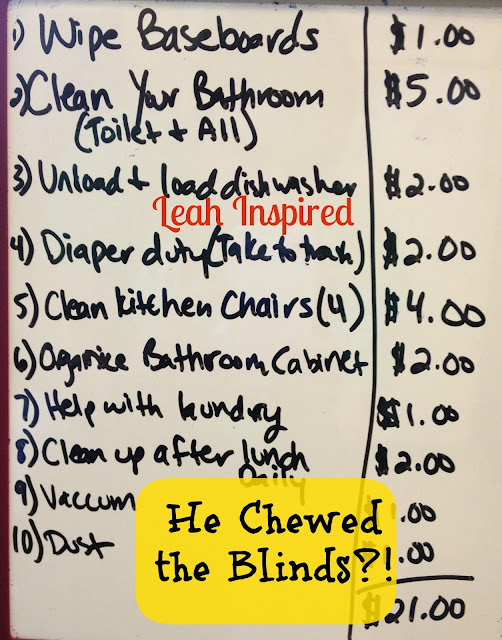 1) Wipe Baseboards $1.00
2) Clean Your Bathroom $5.00
(Toilet + All)
3) Unload + load dishwasher $2.00
Leah Inspired
4) Diaper duty (Take to trash) $2.00
5) Clean kitchen Chairs (4) $4.00
6) Organize Bathroom Cabinet $2.00
7) Help with laundry $1.00
8) Clean up after lunch $2.00
Daily
9) Vaccum 1.00
10) Dust .00
He Chewed
the Blinds?!
$21.00